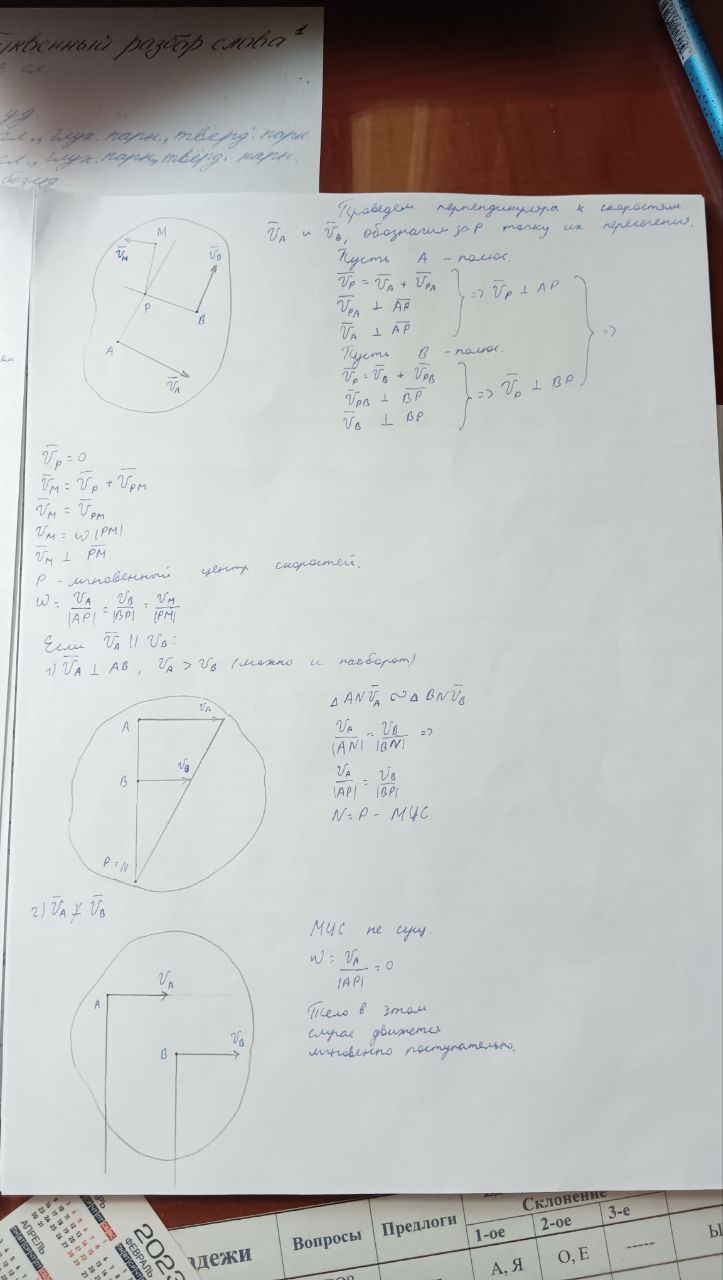 квенный разбор слова 1
уд
гл., глух. парн., тверд. парн.
гл., глух. парн, тверд. парн.
безуд
Проведем перпендикуляра к скоростям
V̅A и V̅B, обозначим за P точку их пересечения.
Пусть A - полюс.
V̅P = V̅A + V̅PA
V̅PA ⊥ A̅P̅
V̅A ⊥ A̅P̅
=> V̅P ⊥ AP
Пусть B - полюс.
V̅P = V̅B + V̅PB
V̅PB ⊥ B̅P̅
V̅B ⊥ BP
=> V̅P ⊥ BP
=>
M
V̅M
V̅B
P
B
A
V̅A
V̅P = 0
V̅M = V̅P + V̅PM
V̅M = V̅PM
VM = ω |PM|
V̅M ⊥ P̅M̅
P - мгновенный центр скоростей.
ω = VA/|AP| = VB/|BP| = VM/|PM|
Если V̅A || V̅B:
1) V̅A ⊥ AB, VA > VB (можно и наоборот)
A
VA
B
VB
P = N
△ANV̅A ∾ △BNV̅B
VA/|AN| = VB/|BN| =>
VA/|AP| = VB/|BP|
N = P - МЦС
2) V̅A ⊥̸ V̅B
A
V̅A
B
V̅B
МЦС не сущ.
ω = VA/|AP| = 0
Тело в этом
случае движется
мгновенно поступательно.
2023
ФЕВРАЛЬ
АПРЕЛЬ
адежи
Вопросы
Предлоги
Склонение
1-ое
2-ое
3-е
А, Я
О, Е
-----
Ы